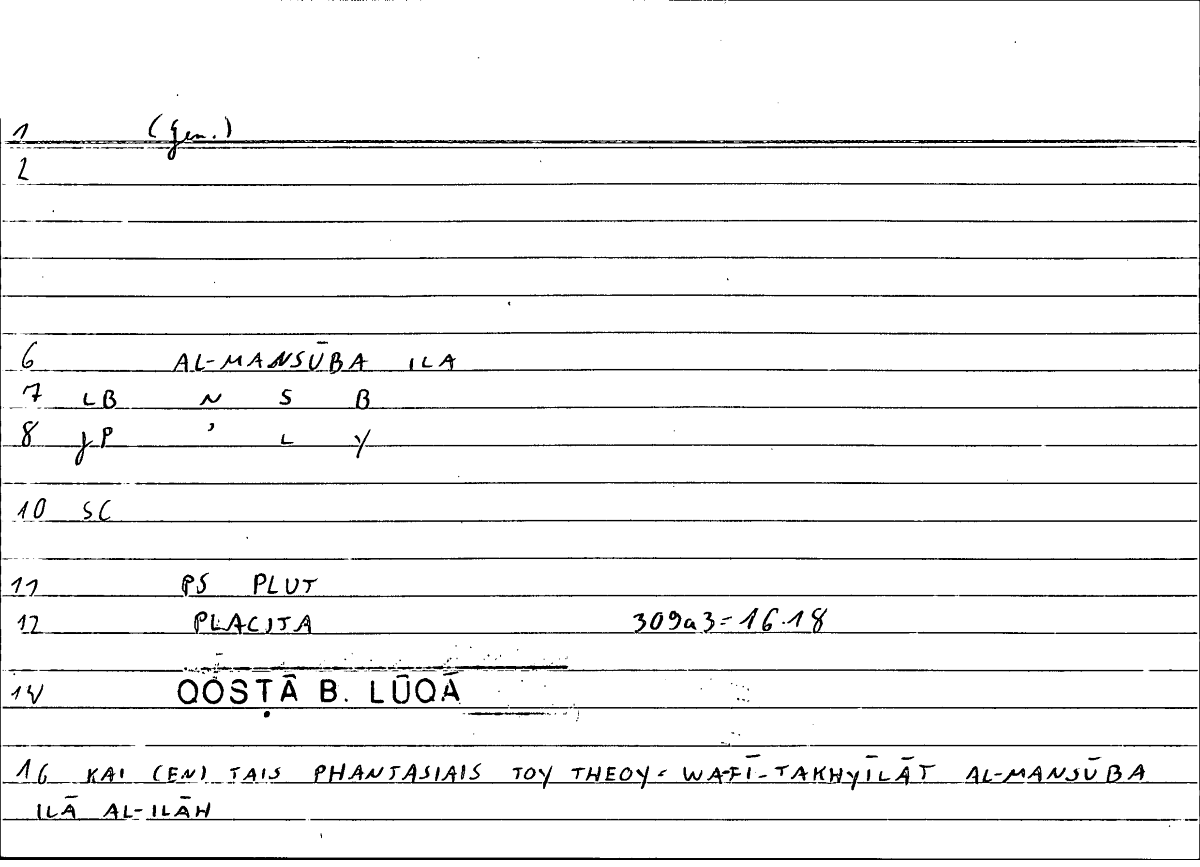 1 (gen.)
2
6 AL-MANSŪBA ILA
7 LB N S B
8 JP ʾ L Y
10 SC
11 PS PLUT
12 PLACITA 309a3=16.18
14 QŌSṬĀ B. LŪQĀ
16 KAI (EN) TAIS PHANTASIAIS TOY THEOY = WA-FĪ-TAKHYĪLĀT AL-MANSŪBA
ILĀ AL-ILĀH